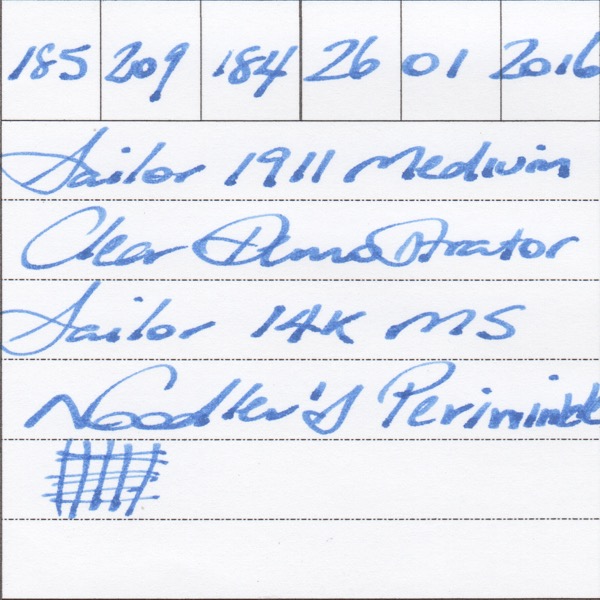 185 209 184 26 01 2016
Sailor 1911 Medium
Clear Demostrator
Sailor 14K MS
Noodler's